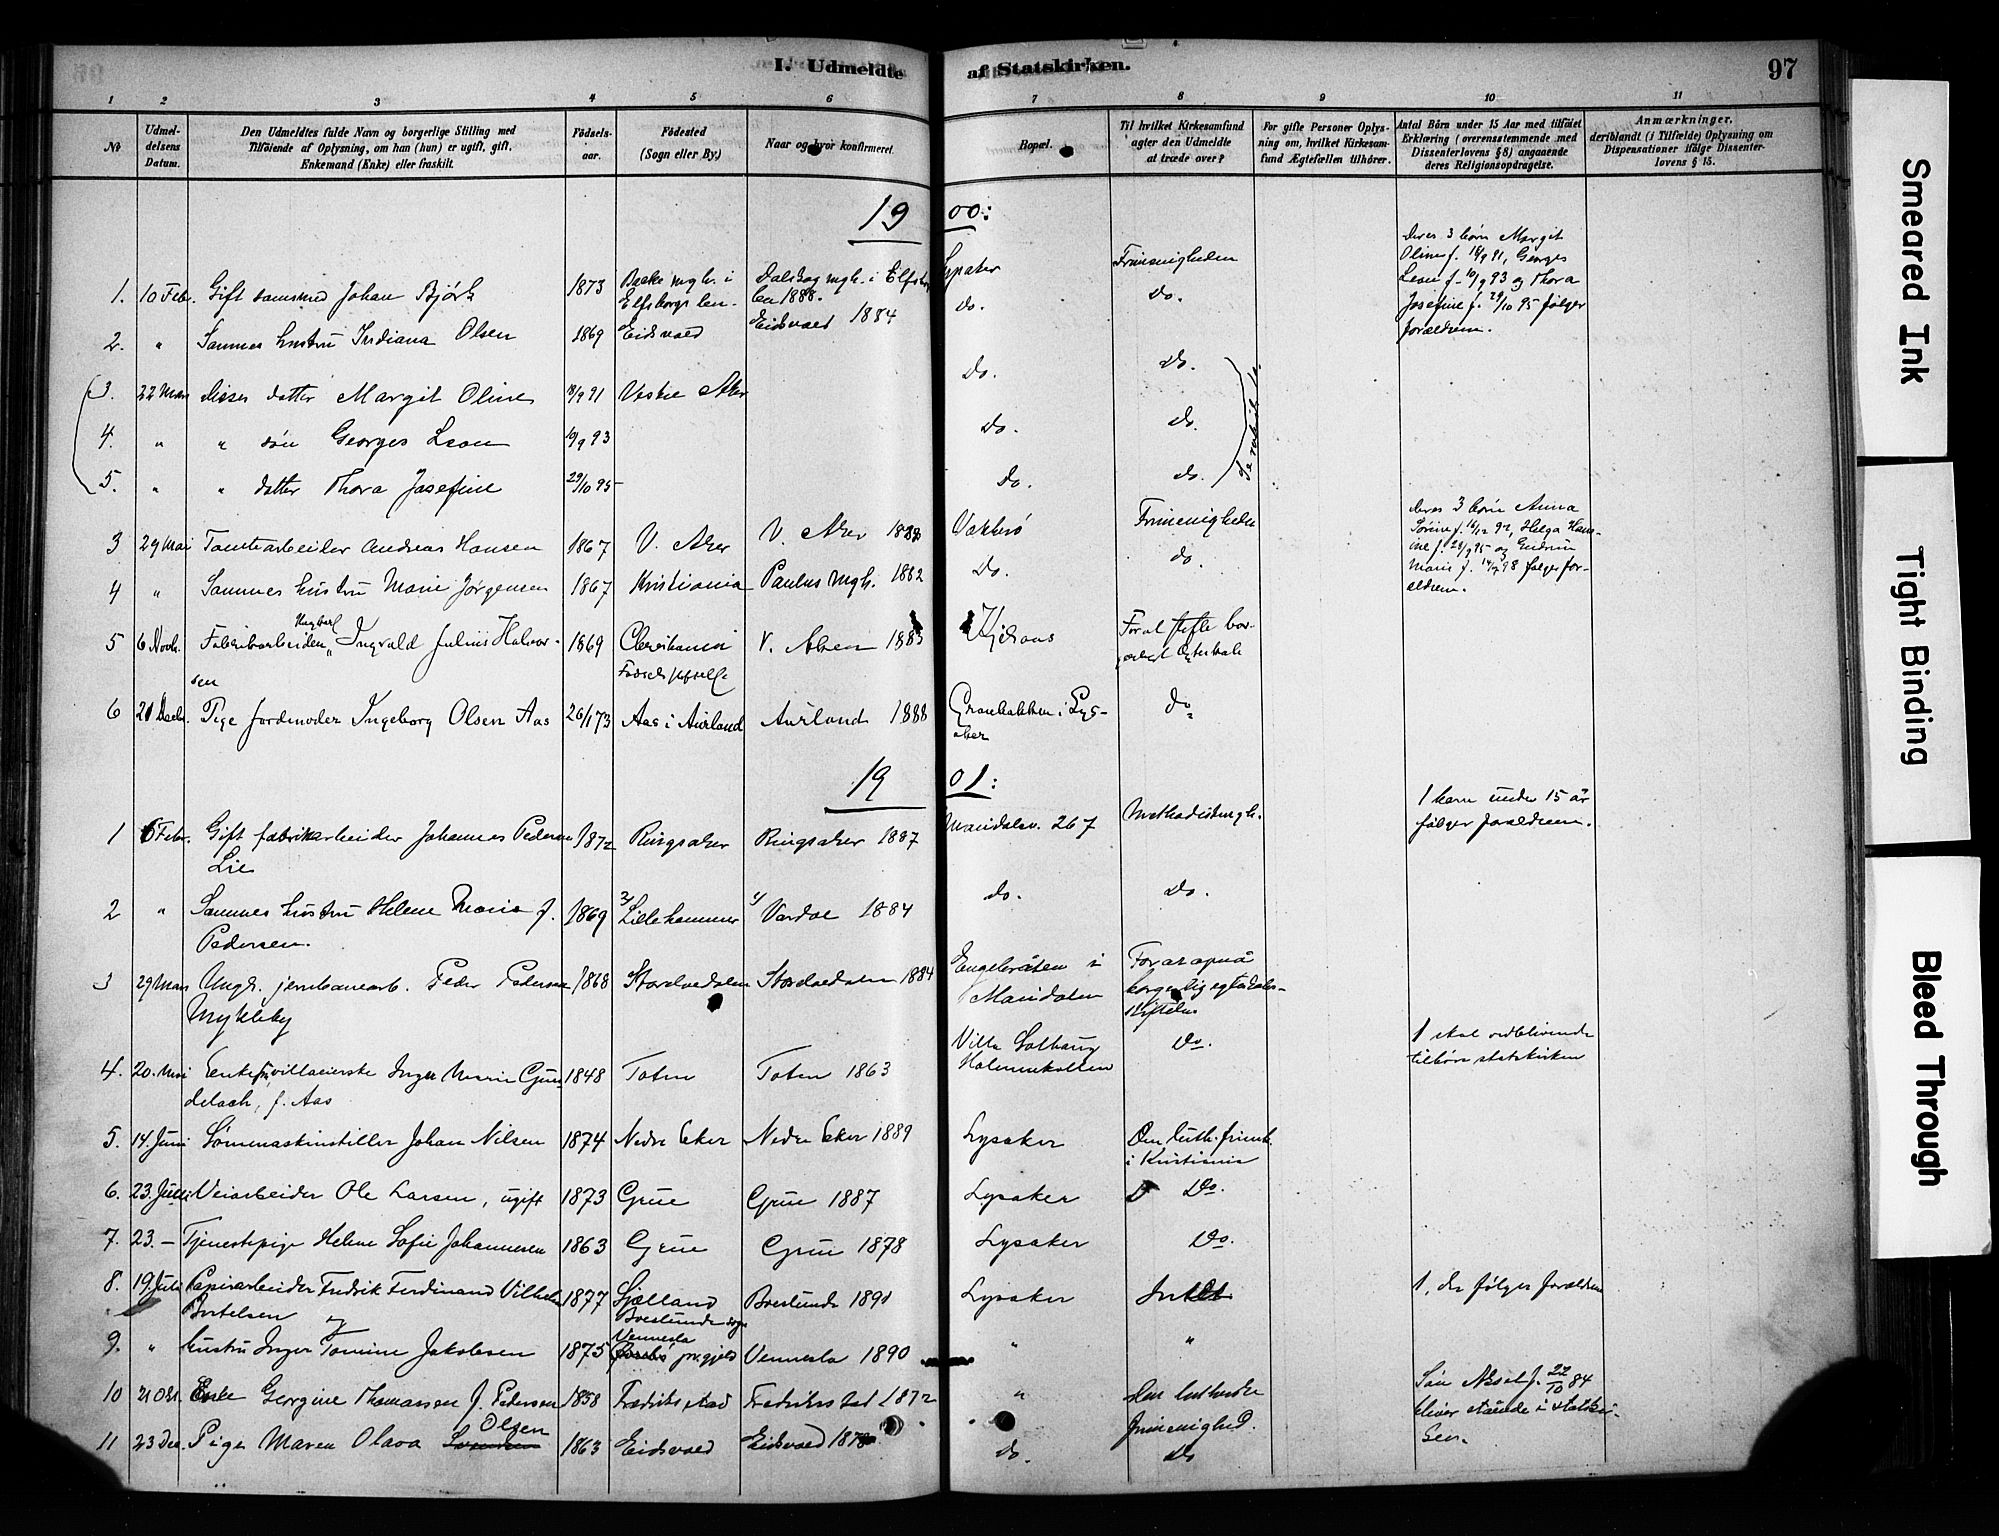 I. Udmeldte af Statskirken. 97
1 2 3 4 5 6 7 8 9 10 11
No
Udmeldelsens Datum.
Den Udmeldtes fulde Navn og borgerlige Stilling med
Tilføiende af Oplysning, om han (hun) er ugift, gift,
Enkemand (Enke) eller fraskilt.
Fødselsaar.
Fødested
(Sogn eller By.)
Naar og hvor konfirmeret.
Bopæl.
Til hvilket Kirkesamfund
agter den Udmeldte
at træde over?
For gifte Personer Oplys-
ning om, hvilket Kirkesam-
fund Ægtefællen tilhører.
Antal Børn under 15 Aar med tilføiet
Erklæring (overensstemmende med
Dissenterlovens § 8) angaaende
deres Religionsopdragelse.
Anmærkninger,
deriblandt (i Tilfælde) Oplysning om
Dispensationer ifølge Dissenter-
lovens § 15.
19 00:
1. 10 Feb. Gift Johan Björk 1873 Lysaker Frimenigheden
deres 3 børn Margit
Oline f. 18/9 91, Georges
Leon f. 10/9 93 og Thora
Josefine f. 29/10 95 følger
forældrene.
2. " Sammes hustru Indiana Olsen 1869 Eidsvold Eidsvold 1884 do. do.
3. 22 Mars disses datter Margit Oline 18/9 91 Vestre Aker do. do.
4. " " søn Georges Leon 10/9 93 do. do.
5. " " datter Thora Josefine 29/10 95 do. do.
3 29 Mai Tomtearbeider Andreas Hansen 1867 V. Aker V. Aker Vækkerø Frimenigheden
deres 3 børn Anna
4 " Sammes hustru Marie Jørgensen 1867 Kristiania Paulus mgh. 1882 do. do.
5 6 Novb. Fabrikarbeider Ingvald Julius Halvor-
sen 1869 Christiania
Fødselsstiftelse V. Aker 1885 Kjelsaas
6 21 Decbr. Pige jordmoder Ingeborg Olsen Aas 26/1 73 Aas i Aurland Aurland 1888 Granbakken i Lys-
aker do
19 01:
1 6 Febr. Gift fabrikarbeider Johannes Pedersen
Lie 1872 Ringsaker Ringsaker 1887 Maridalsv. 267 Methodistmgh.
1 barn under 15 år
følger forældrene.
2 " Sammes hustru Helene Marie f.
Pedersen. 1869 Lillehammer Vardø 1884 do. do.
3 29 Mars Ungk. jernbanearb. Peder Pedersen
Mykleby 1868 Storelvedalen Storelvedalen 1884 Engebråten i
Maridalen For at opnå
borgerlig egteskabs-
stiftelse
4. 20. Mai Enkefru villaeierske Inger Marie Gun-
delach, f. Aas 1848 Toten Toten 1863 Villa Solhaug
Holmenkollen Do.
1 skal vedblivende
tilhøre statskirken
5. 14. Juni Symaskinstiller Johan Nilsen 1874 Nedre Eker Nedre Eker 1889 Lysaker Den luth. frimk.
i Kristiania
6. 23. Juni Veiarbeider Ole Larsen, ugift 1873 Grue Grue 1887 Lysaker Do.
7. 23. — Tjenestepige Helene Sofie Johannesen 1863 Grue Grue 1878 Lysaker Do.
8. 19. Juli Papirarbeider Fredrik Ferdinand Vilhelm
Bertelsen og 1877 Sjælland
Boeslunde sogn Boeslunde 1891 Lysaker Intet 1, der følger forældrene
9. " hustru Inger Tomine Jakobsen 1875 Vennesla
prgjeld Vennesla 1890 " "
10 21 Okt. Enke Georgine Thomassen f. Pedersen 1858 Fredrikstad Fredrikstad 1872 " Den lutherske
frimenighed.
Søn Aksel f. 22/10 84
bliver stående i statskir-
ken.
11 23 Dec. Pige Maren Olava Olsen 1863 Eidsvold Eidsvold 1878 do. do
Smeared Ink
Tight Binding
Bleed Through